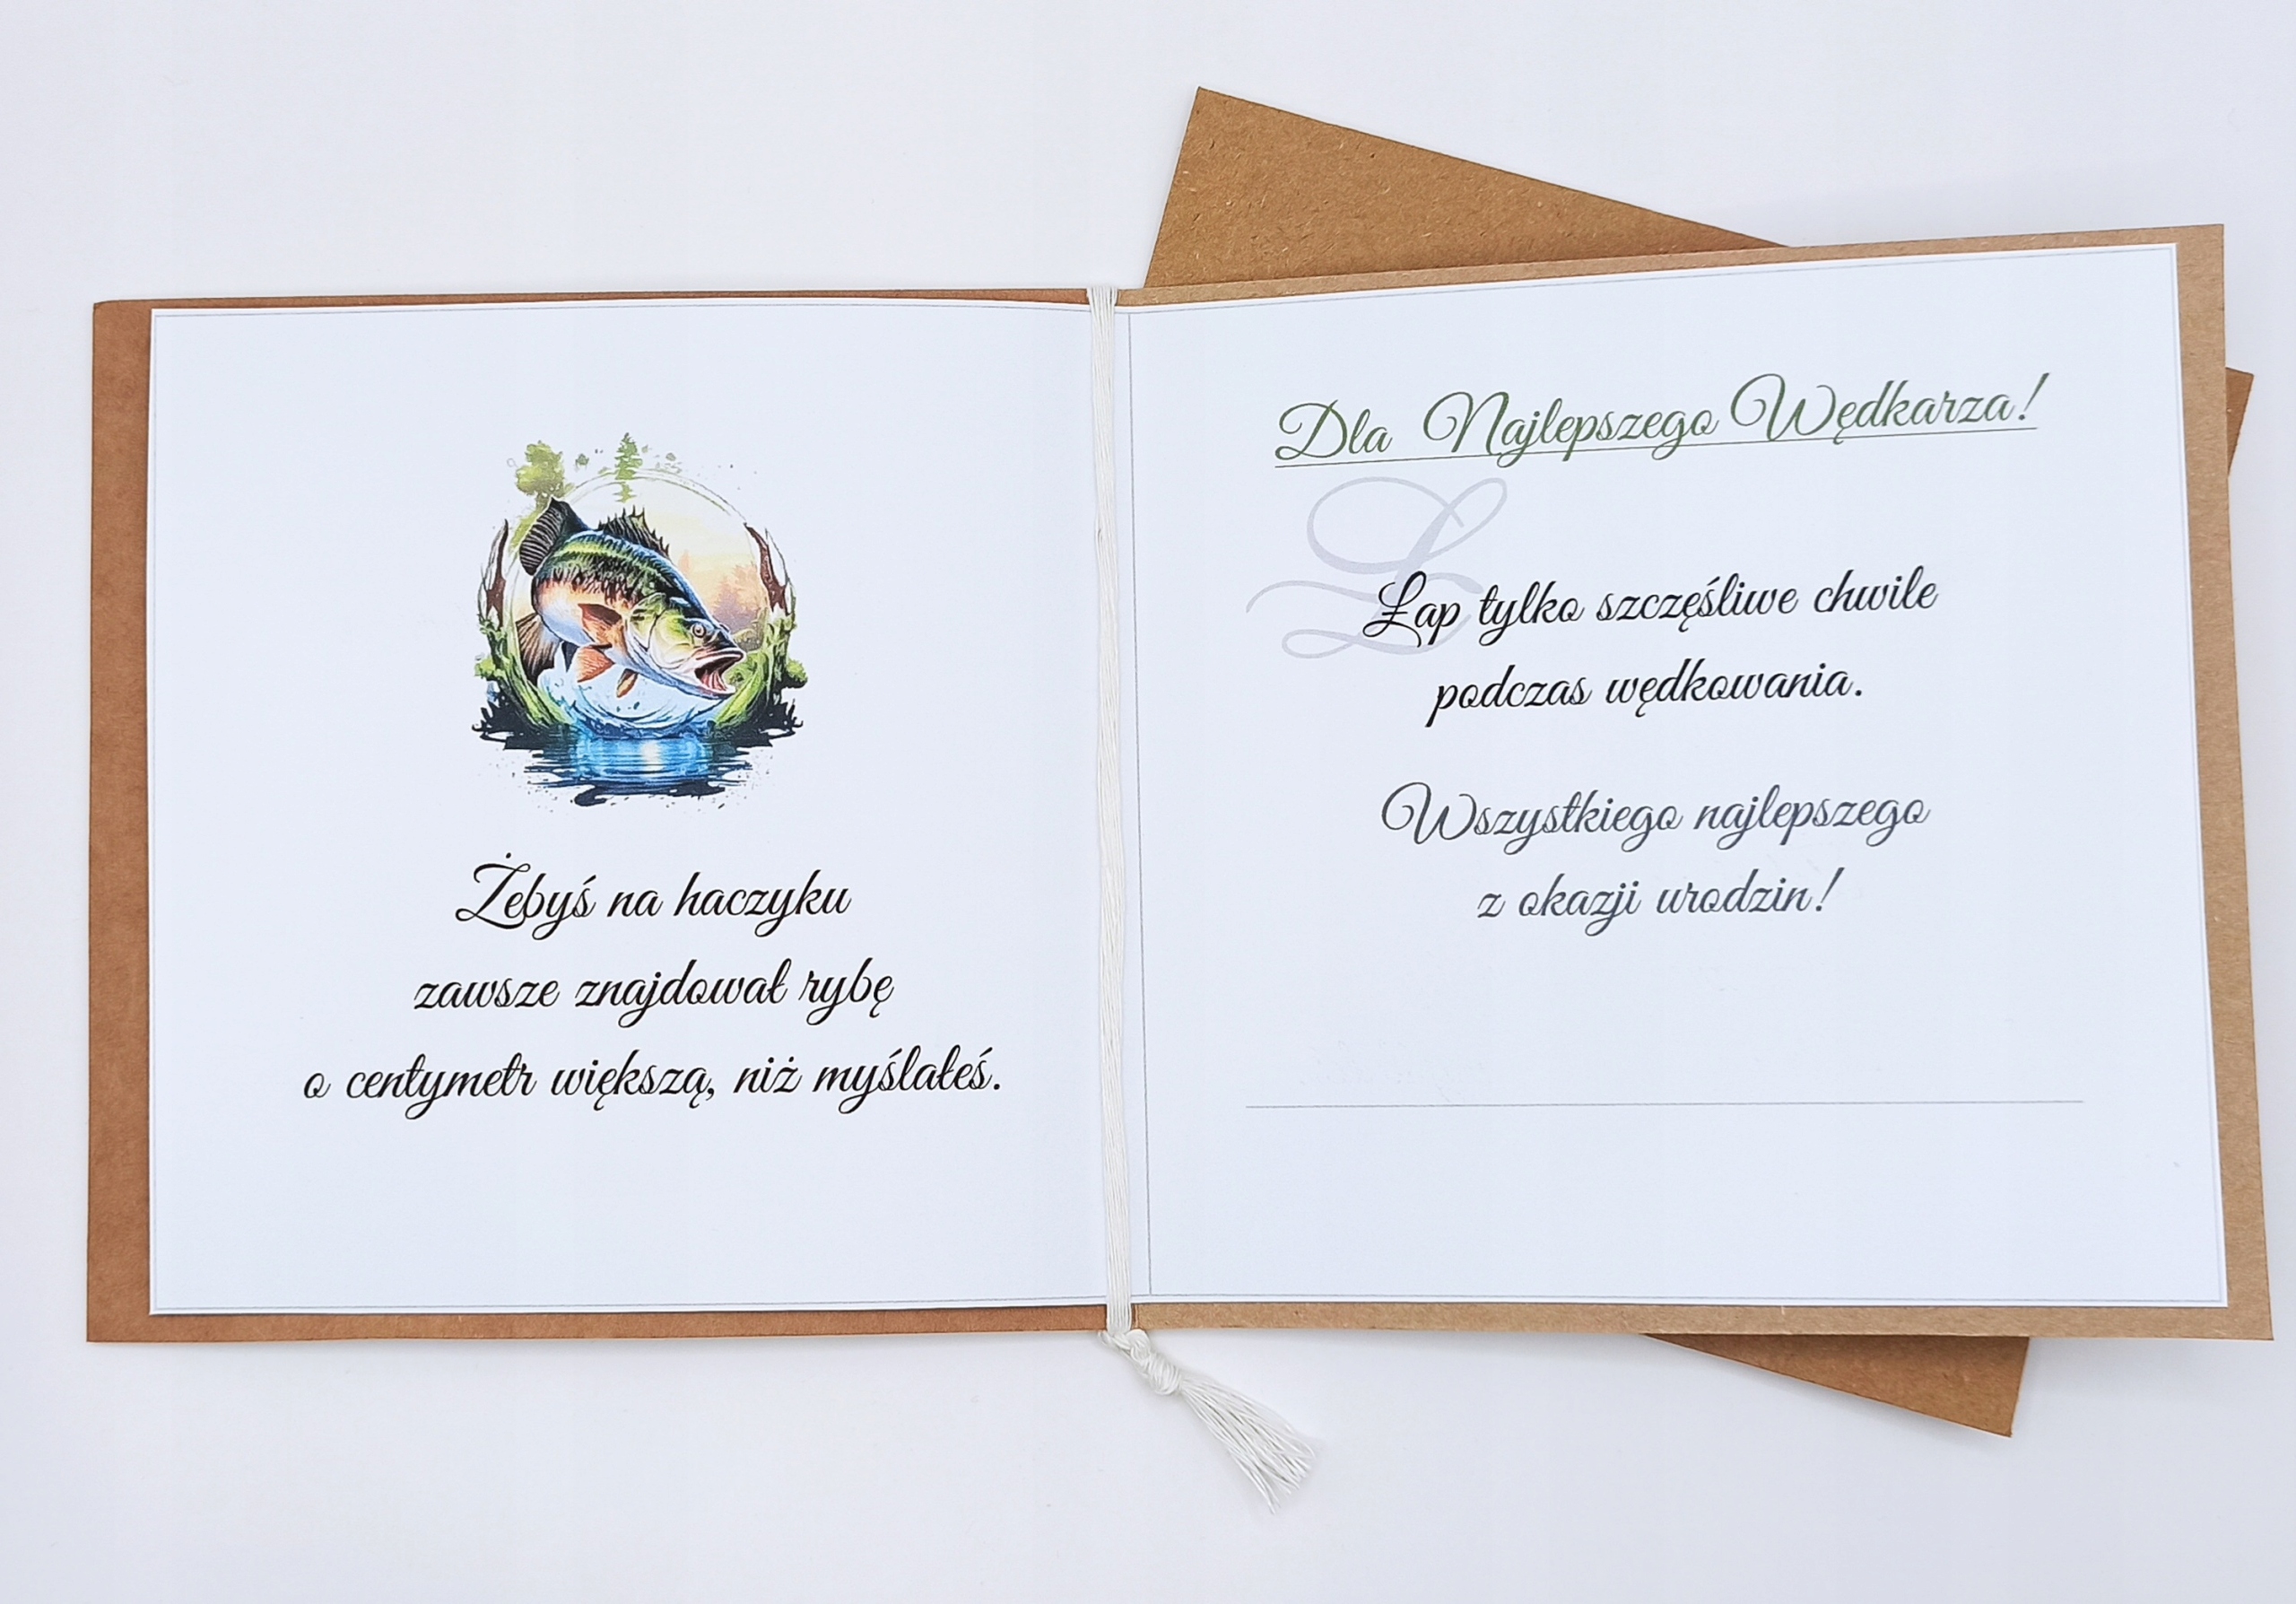 Żebyś na haczyku
zawsze znajdował rybę
o centymetr większą, niż myślałeś.
Dla Najlepszego Wędkarza!
Ł
Łap tylko szczęśliwe chwile
podczas wędkowania.
Wszystkiego najlepszego
z okazji urodzin!